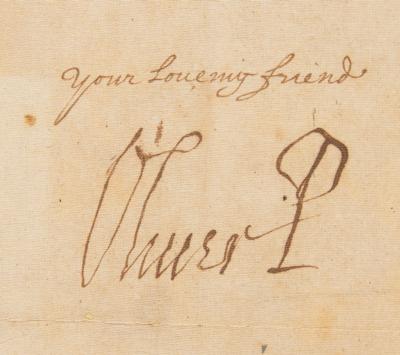 your loveing friend
Oliver P